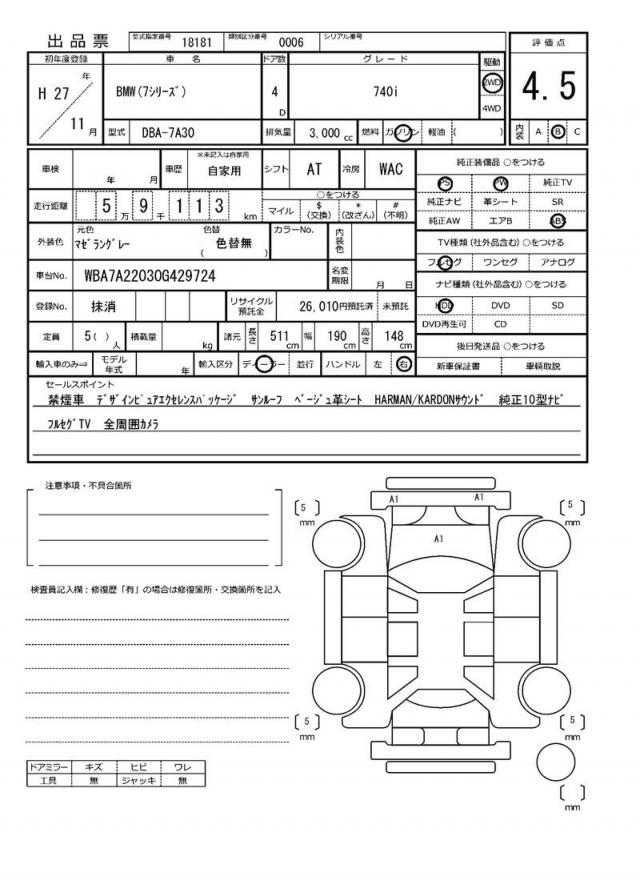 出品票 型式指定番号 18181 類別区分番号 0006 シリアル番号
評価点
初年度登録 車名 ドア数 グレード 駆動
H 27 年 11 月 BMW(7ｼﾘｰｽﾞ) 4 D 740i 2WD 4WD 4.5
型式 DBA-7A30 排気量 3,000 cc 燃料 ガソリン 軽油 ( ) 内装 A B C
車検 年 月 車歴 ※未記入は自家用 自家用 シフト AT 冷房 WAC
純正装備品 ○をつける
PS PW 純正TV
走行距離 5万 9千 1 1 3 km ○をつける マイル $(交換) *(改ざん) #(不明)
純正ナビ 革シート SR
純正AW エアB ABS
外装色 元色 ﾏｾﾞﾗﾝｸﾞﾚｰ 色替 ( 色替無 ) カラーNo. 内装色
TV種類(社外品含む)○をつける
フルセグ ワンセグ アナログ
車台No. WBA7A22030G429724 名変期限 月 日
ナビ種類(社外品含む)○をつける
登録No. 抹消 リサイクル預託金 26,010円預託済 未預託
HDD DVD SD
DVD再生可 CD
定員 5( )人 積載量 kg 諸元 長さ 511 cm 幅 190 cm 高さ 148 cm
後日発送品 ○をつける
輸入車のみ⇒ モデル年式 年 輸入区分 ディーラー 並行 ハンドル 左 右
新車保証書 車輌取説
セールスポイント
禁煙車 ﾃﾞｻﾞｲﾝﾋﾟｭｱｴｸｾﾚﾝｽﾊﾟｯｹｰｼﾞ ｻﾝﾙｰﾌ ﾍﾞｰｼﾞｭ革ｼｰﾄ HARMAN/KARDONｻｳﾝﾄﾞ 純正10型ﾅﾋﾞ
ﾌﾙｾｸﾞTV 全周囲ｶﾒﾗ
注意事項・不具合箇所
検査員記入欄：修復歴「有」の場合は修復箇所・交換箇所を記入
A1 A1
5 mm 5 mm
A1
5 mm 5 mm
mm
ドアミラー キズ ヒビ ワレ
工具 無 ジャッキ 無